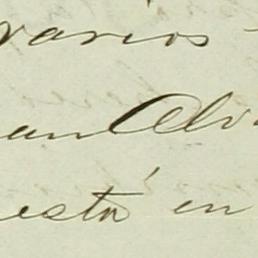 varios
an Alv
está en